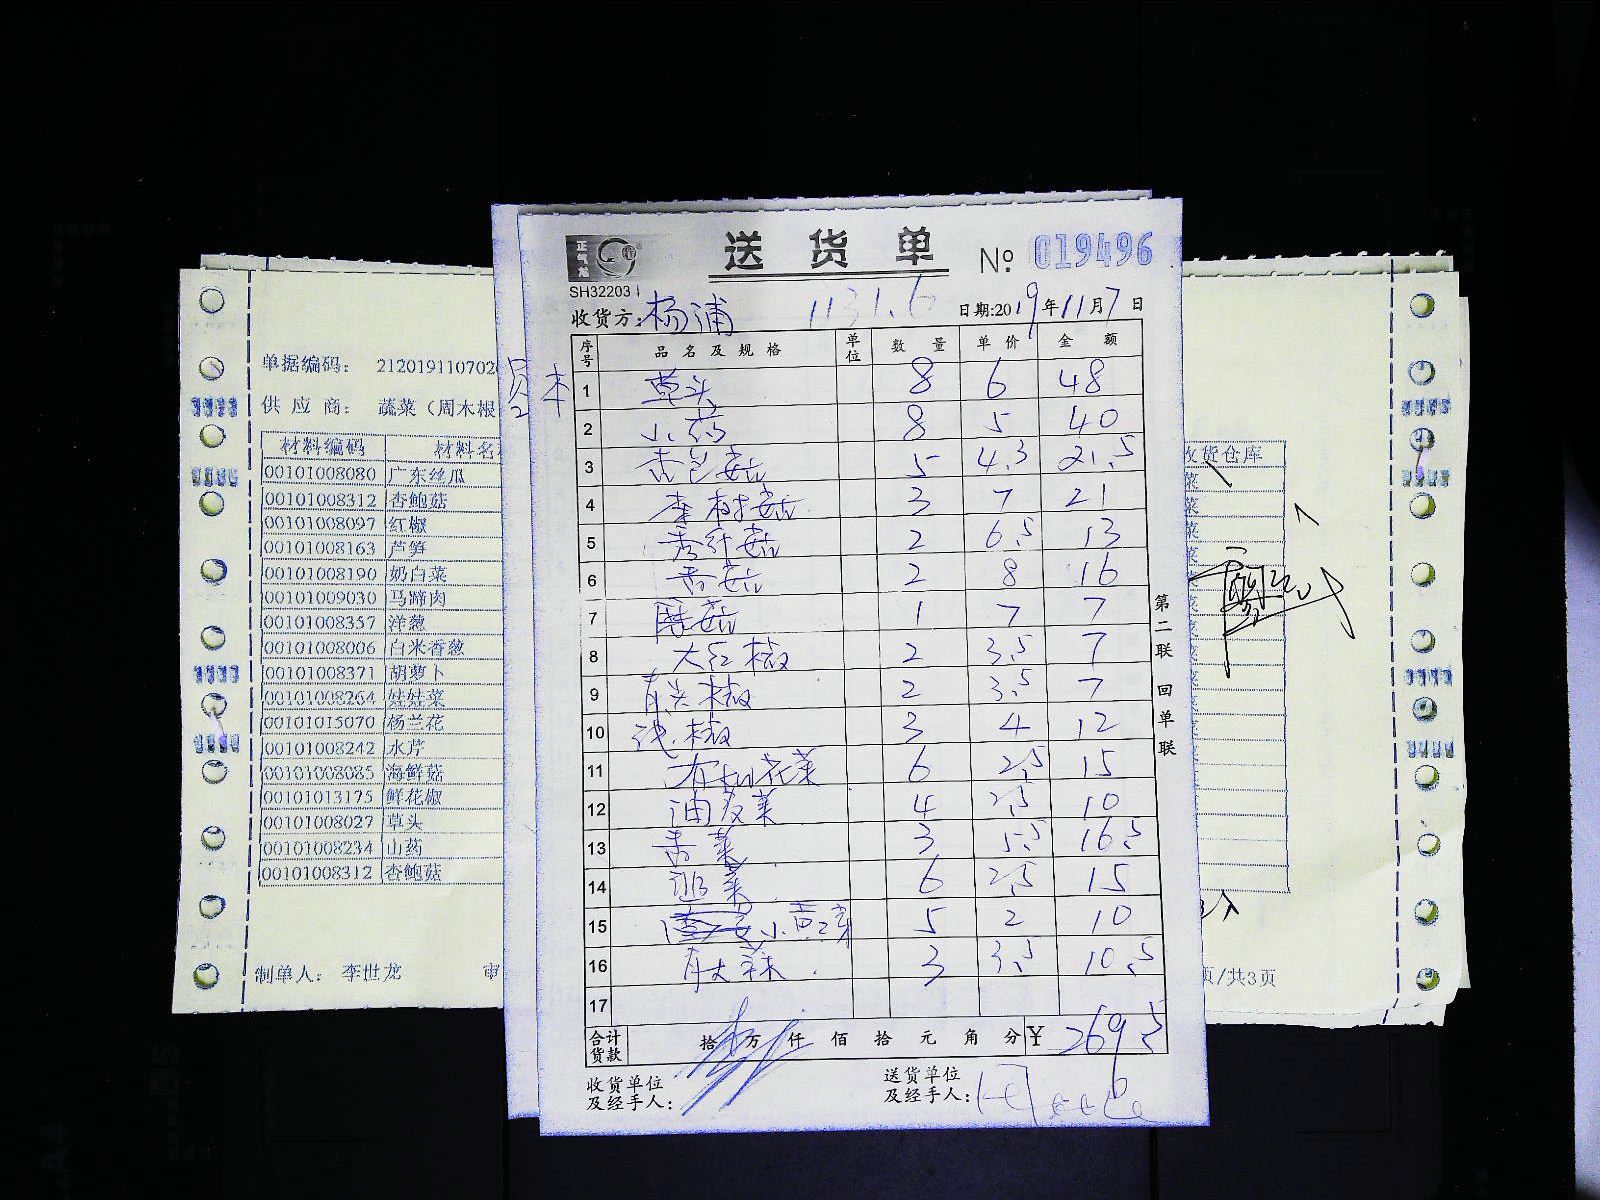 正气龙
送货单 № 019496
SH32203
收货方: 杨浦 1131.6 日期:2019年11月7日
序号 品名及规格 单位 数量 单价 金额
1 草头 8 6 48
2 小药 8 5 40
3 杏包菇 5 4.3 21.5
4 茶树菇 3 7 21
5 秀珍菇 2 6.5 13
6 香菇 2 8 16
7 蘑菇 1 7 7
8 大红椒 2 3.5 7
9 青尖椒 2 3.5 7
10 线椒 3 4 12
11 有机花菜 6 2.5 15
12 油麦菜 4 2.5 10
13 菜 3 5.5 16.5
14 菜 6 2.5 15
15 小 5 2 10
16 3 3.5 10.5
17
合计货款 拾 万 仟 佰 拾 元 角 分 ¥ 269.5
收货单位及经手人:
送货单位及经手人:
第二联 回单联
单据编码: 212019110702
供应商: 蔬菜(周木根
材料编码 材料名
00101008080 广东丝瓜
00101008312 杏鲍菇
00101008097 红椒
00101008163 芦笋
00101008190 奶白菜
00101009030 马蹄肉
00101008357 洋葱
00101008006 白米香葱
00101008371 胡萝卜
00101008264 娃娃菜
00101015070 杨兰花
00101008242 水芹
00101008085 海鲜菇
00101013175 鲜花椒
00101008027 草头
00101008234 山药
00101008312 杏鲍菇
制单人: 李世龙 审
收货仓库
菜
菜
菜
页/共3页